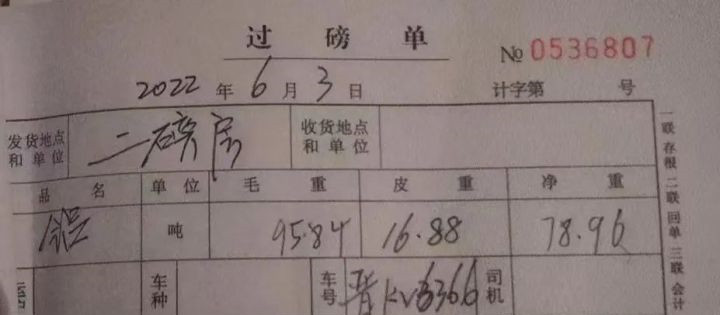 过磅单
№ 0536807
2022年6月3日 计字第 号
发货地点和单位 二碎房 收货地点和单位
品名 单位 毛重 皮重 净重
铝 吨 95.84 16.88 78.96
车种 车号 晋KV6366 司机
一联存根 二联回单 三联会计